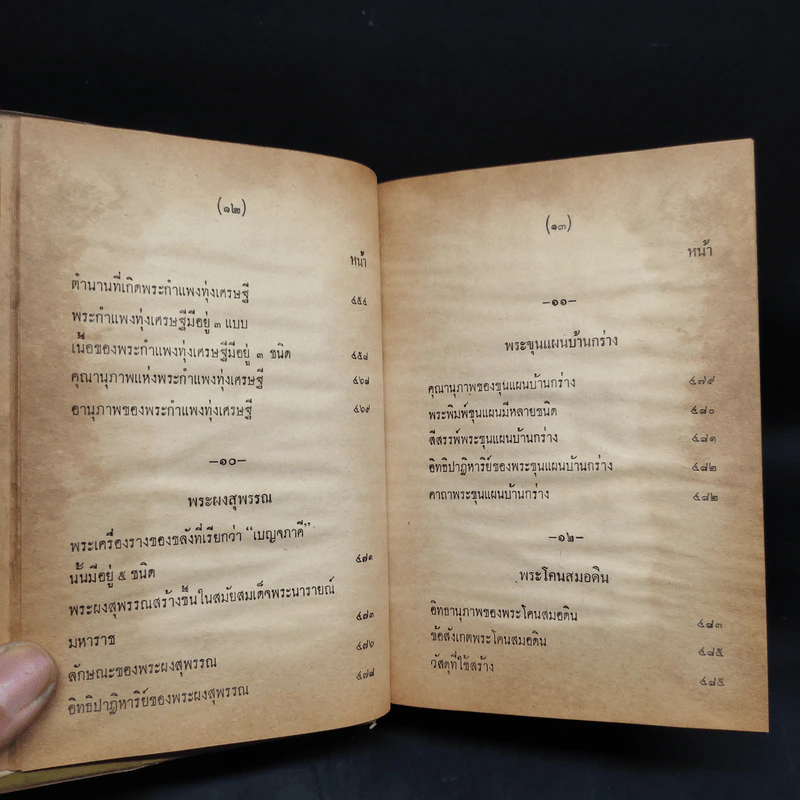 (๑๒)
หน้า
ตำนานที่เกิดพระกำแพงทุ่งเศรษฐี ๔๕๔
พระกำแพงทุ่งเศรษฐีมีอยู่ ๓ แบบ
เนื้อของพระกำแพงทุ่งเศรษฐีมีอยู่ ๓ ชนิด ๔๕๘
คุณานุภาพแห่งพระกำแพงทุ่งเศรษฐี ๔๖๘
อานุภาพของพระกำแพงทุ่งเศรษฐี ๔๖๙
—๑๐—
พระผงสุพรรณ
พระเครื่องรางของขลังที่เรียกว่า “เบญจภาคี”
นั้นมีอยู่ ๕ ชนิด ๔๗๑
พระผงสุพรรณสร้างขึ้นในสมัยสมเด็จพระนารายณ์
มหาราช ๔๗๓
ลักษณะของพระผงสุพรรณ ๔๗๖
อิทธิปาฏิหาริย์ของพระผงสุพรรณ ๔๗๘
(๑๓)
หน้า
—๑๑—
พระขุนแผนบ้านกร่าง
คุณานุภาพของขุนแผนบ้านกร่าง ๔๗๙
พระพิมพ์ขุนแผนมีหลายชนิด ๔๘๐
สีสรรพ์พระขุนแผนบ้านกร่าง ๔๘๑
อิทธิปาฏิหาริย์ของพระขุนแผนบ้านกร่าง ๔๘๒
คาถาพระขุนแผนบ้านกร่าง ๔๘๒
—๑๒—
พระโคนสมอดิน
อิทธานุภาพของพระโคนสมอดิน ๔๘๓
ข้อสังเกตพระโคนสมอดิน ๔๘๕
วัสดุที่ใช้สร้าง ๔๘๕